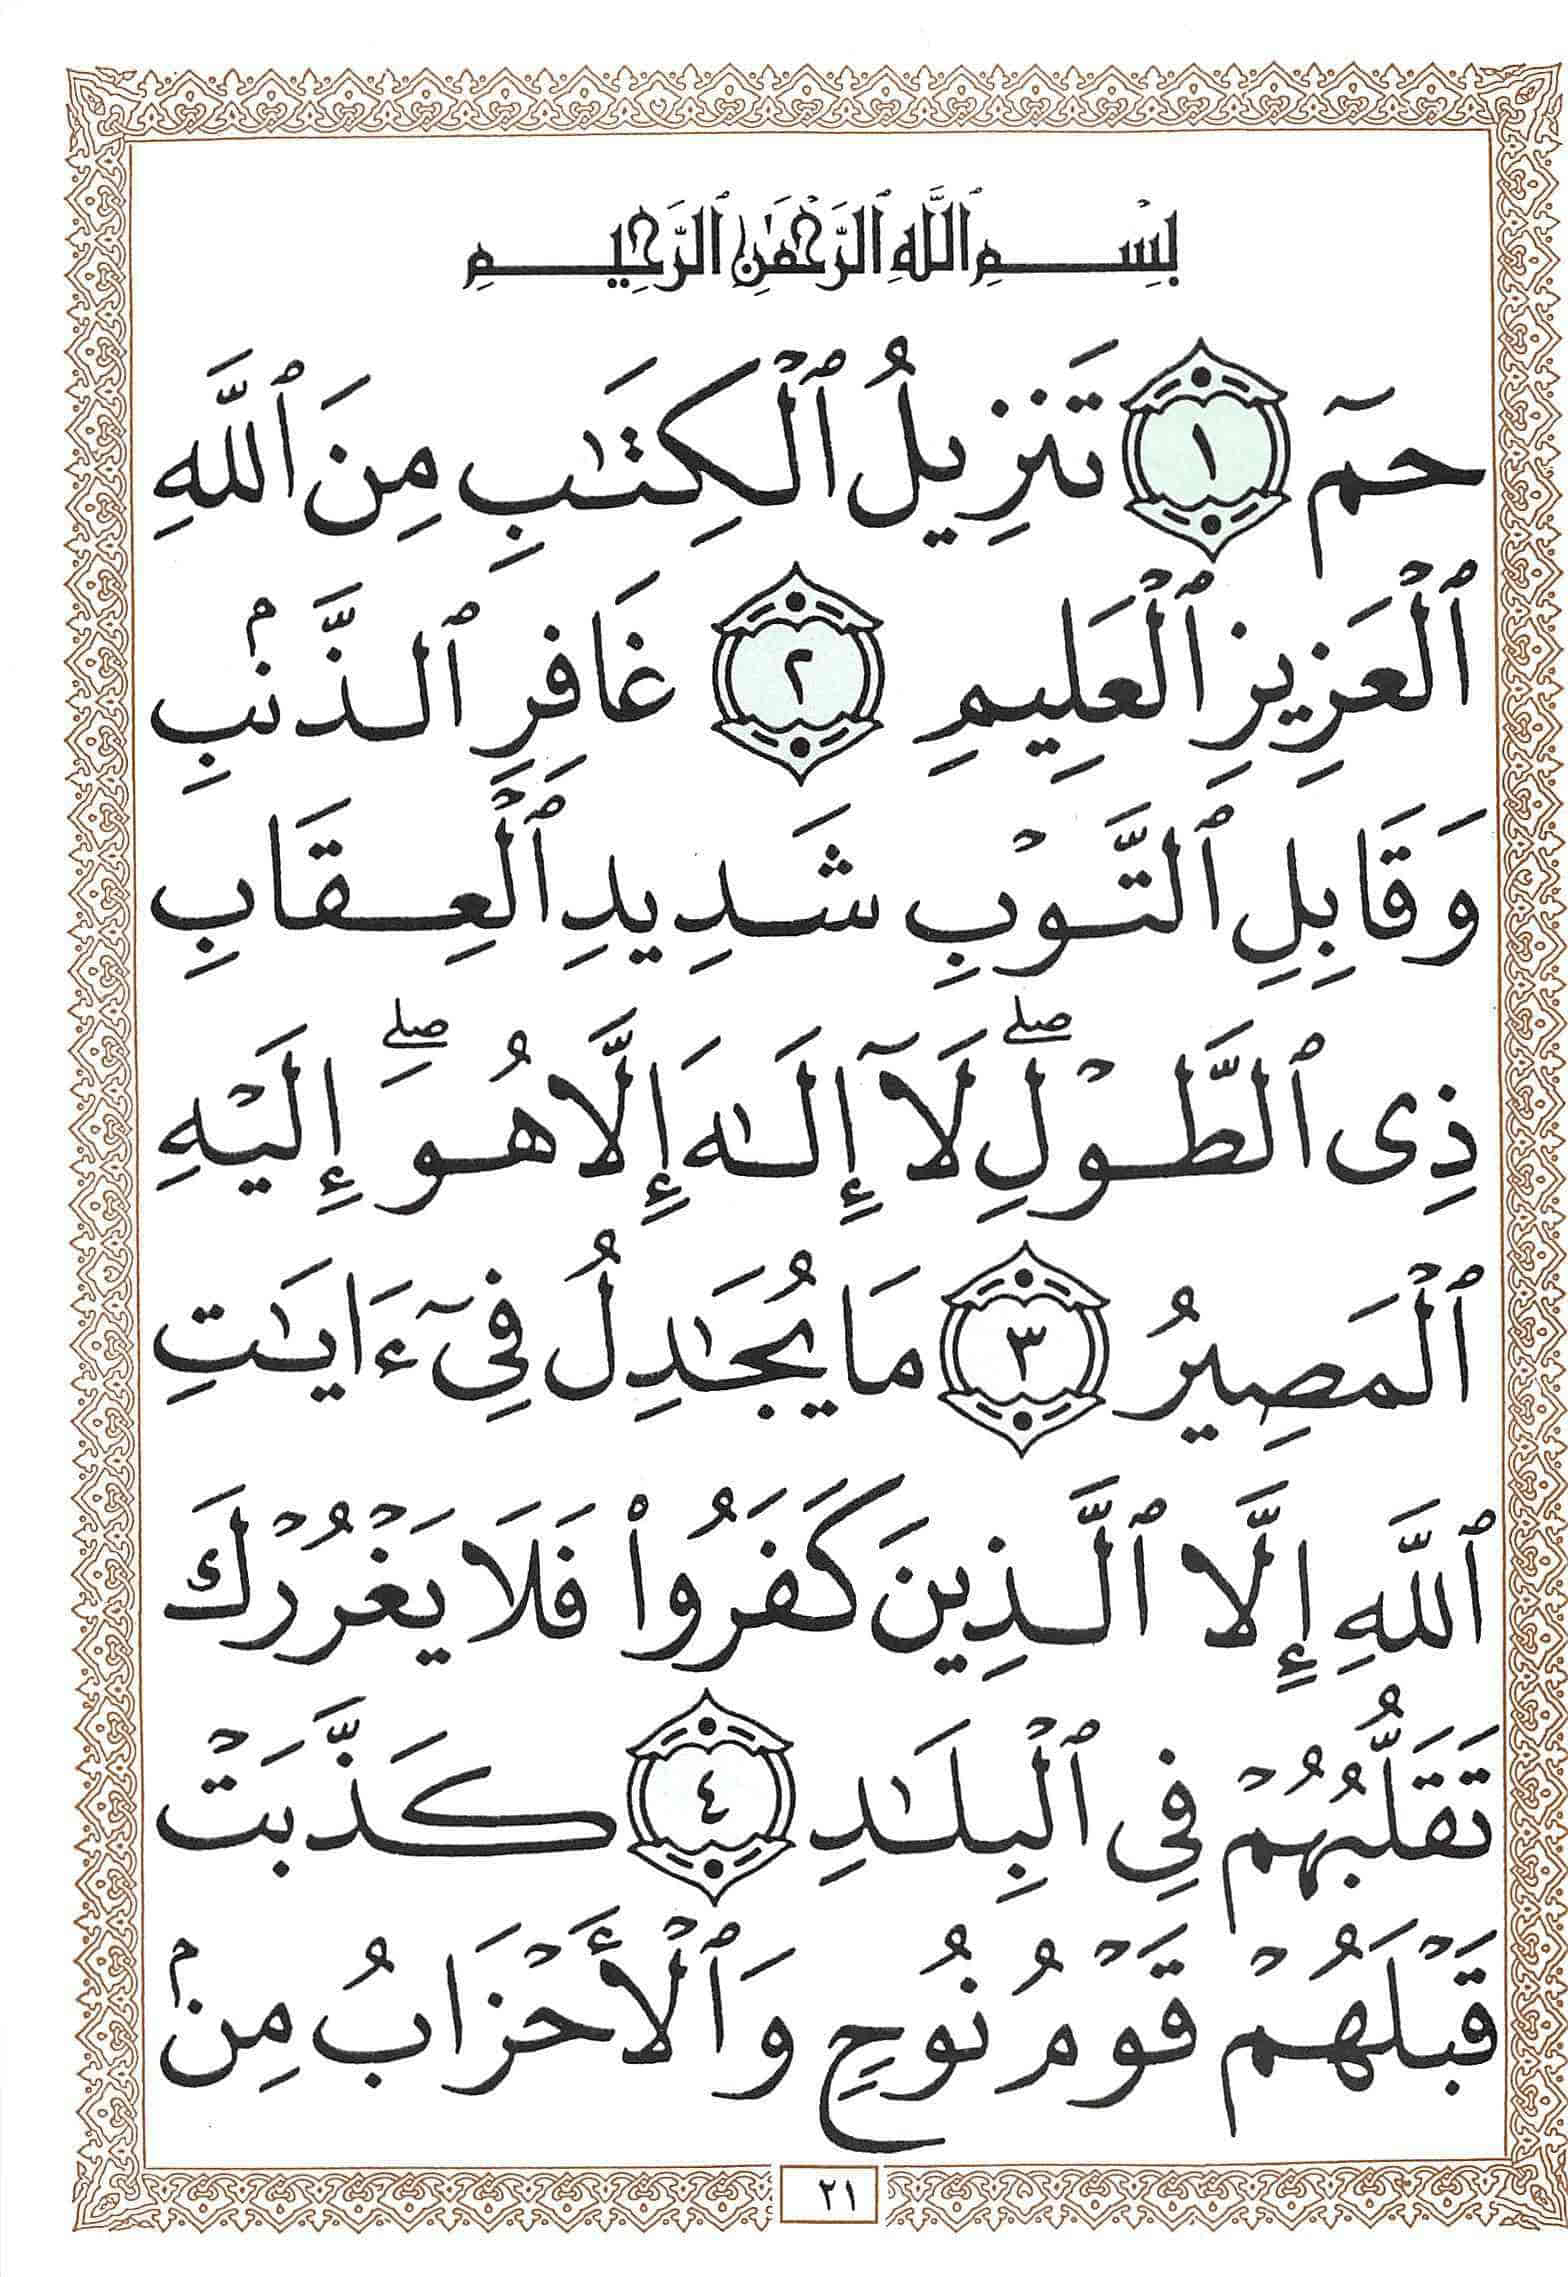 بِسْمِ ٱللَّهِ ٱلرَّحْمَٰنِ ٱلرَّحِيمِ
حمٓ ١ تَنزِيلُ ٱلْكِتَٰبِ مِنَ ٱللَّهِ
ٱلْعَزِيزِ ٱلْعَلِيمِ ٢ غَافِرِ ٱلذَّنۢبِ
وَقَابِلِ ٱلتَّوْبِ شَدِيدِ ٱلْعِقَابِ
ذِى ٱلطَّوْلِۖ لَآ إِلَٰهَ إِلَّا هُوَۖ إِلَيْهِ
ٱلْمَصِيرُ ٣ مَا يُجَٰدِلُ فِىٓ ءَايَٰتِ
ٱللَّهِ إِلَّا ٱلَّذِينَ كَفَرُوا۟ فَلَا يَغْرُرْكَ
تَقَلُّبُهُمْ فِى ٱلْبِلَٰدِ ٤ كَذَّبَتْ
قَبْلَهُمْ قَوْمُ نُوحٍ وَٱلْأَحْزَابُ مِنۢ
٢١